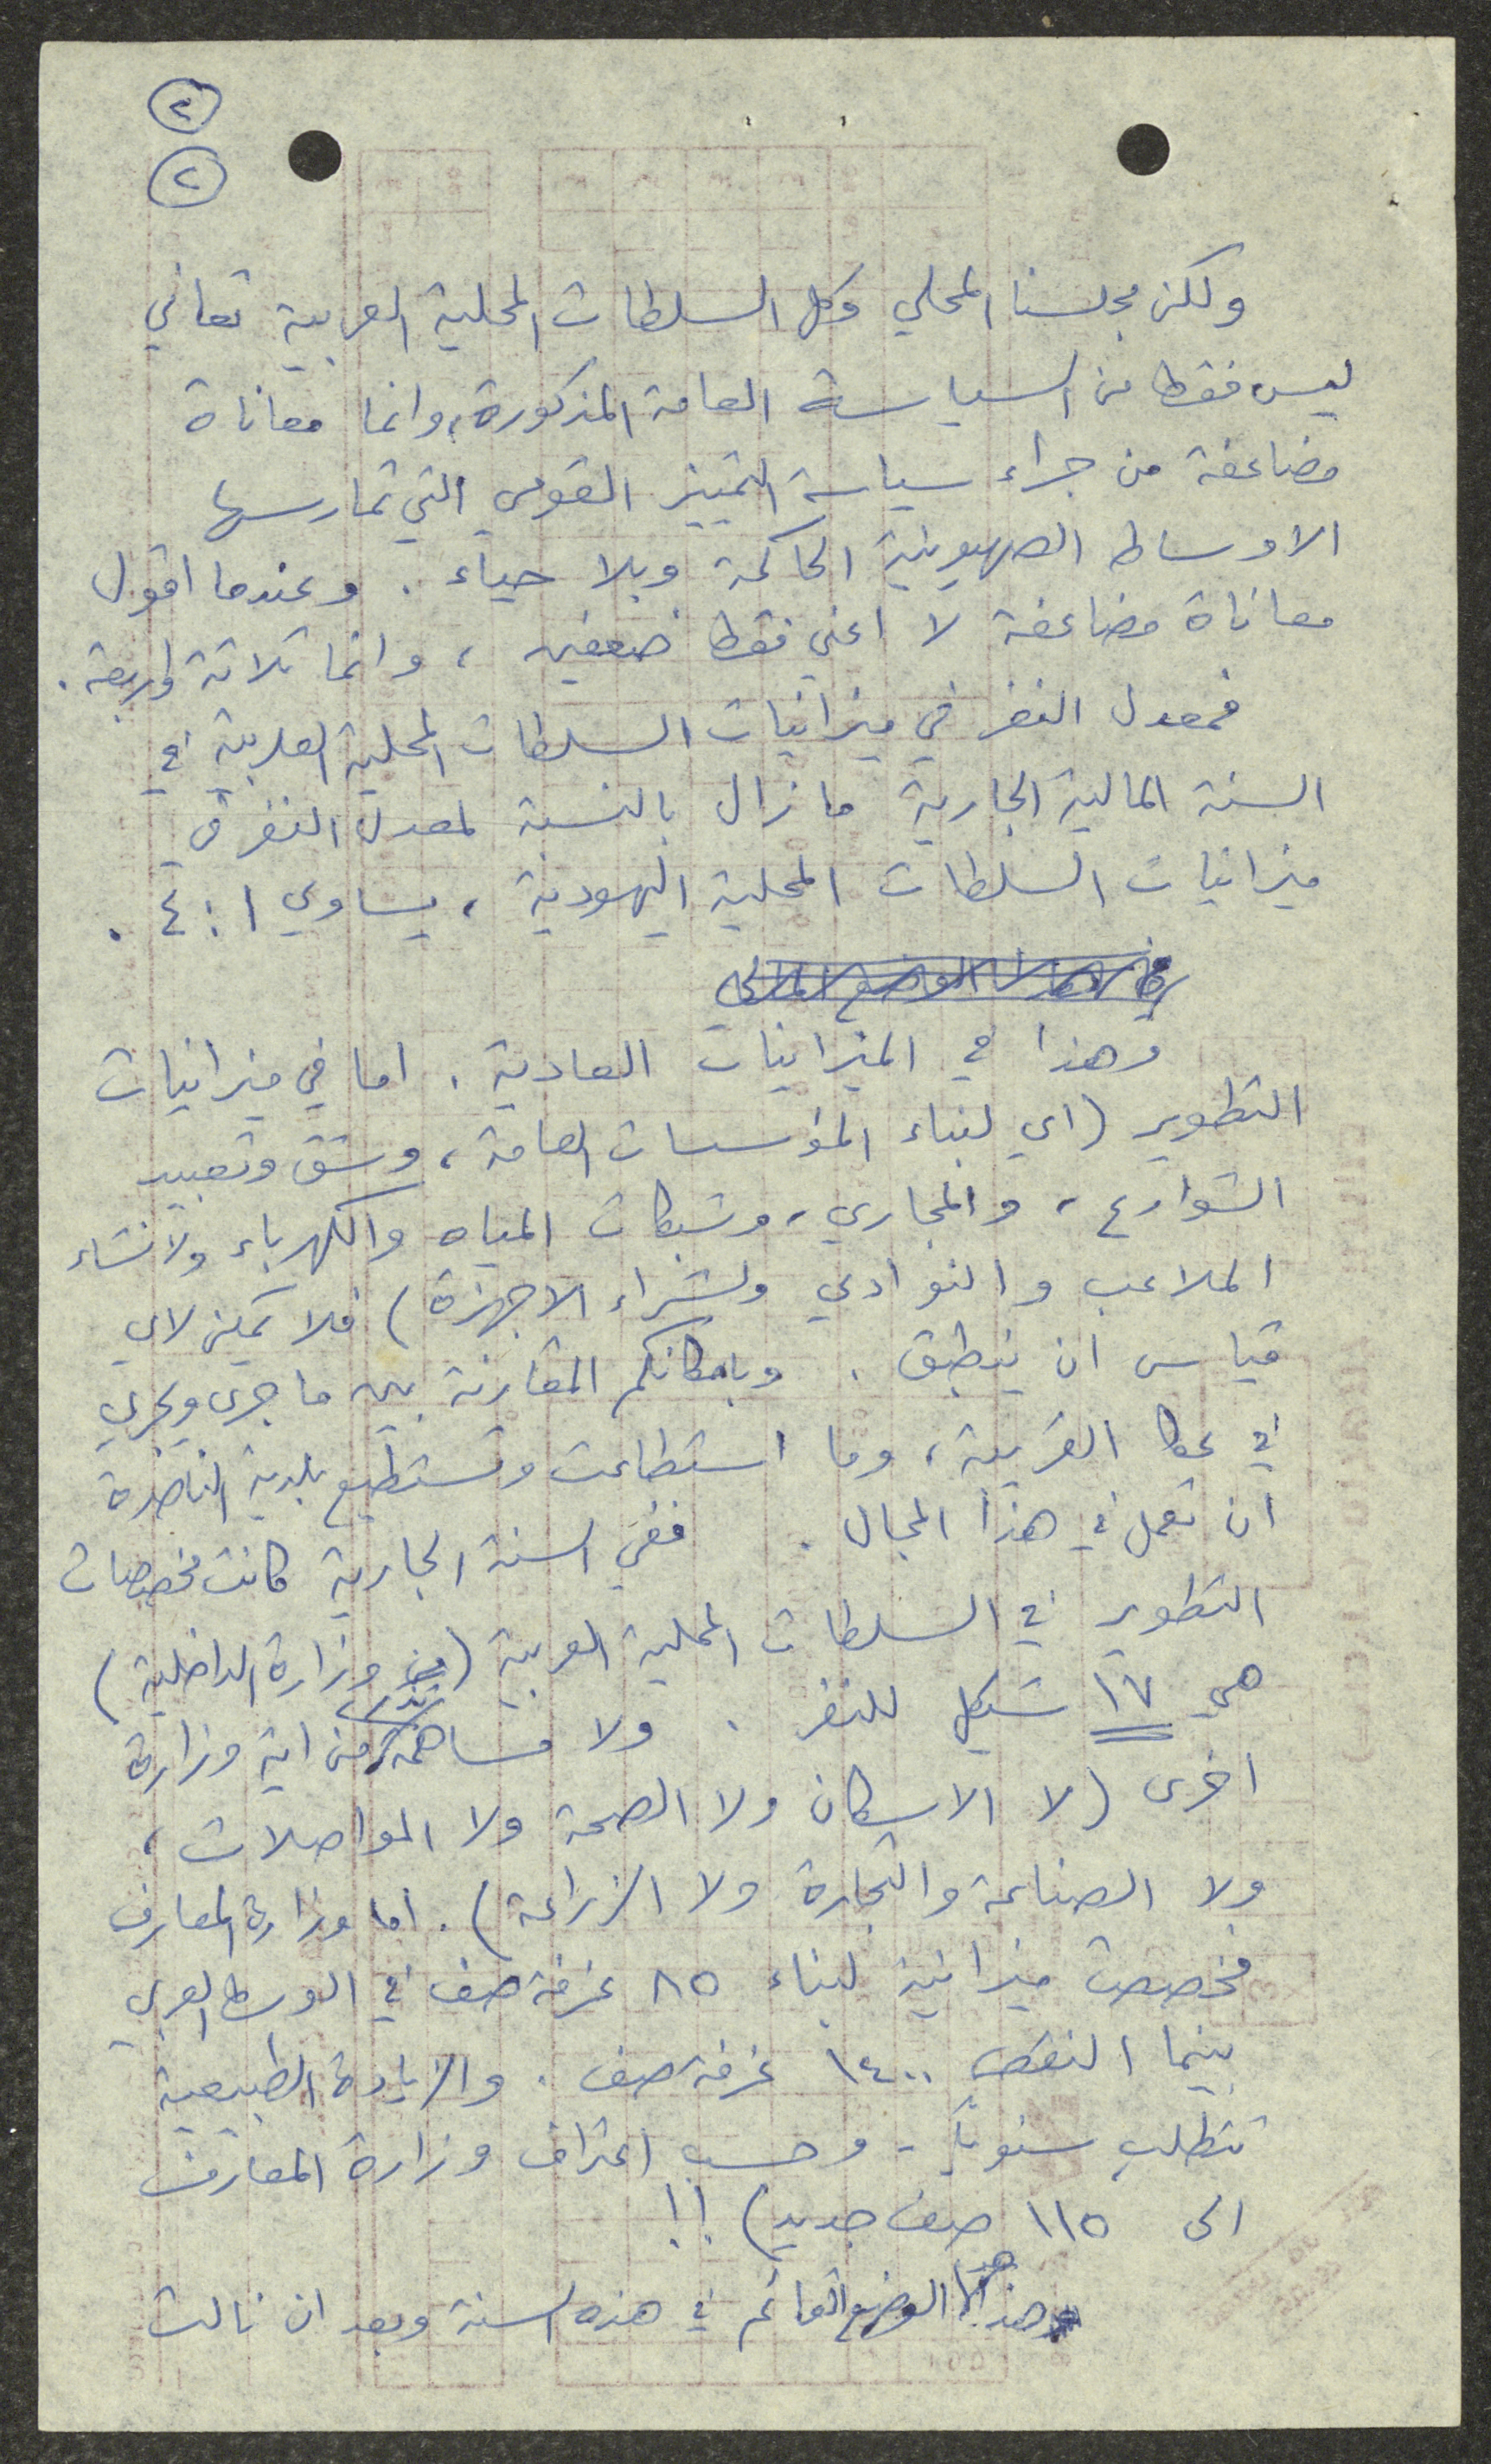 ٢
٢
ولكن مجلسنا المحلي وكل السلطات المحلية العربية تعاني
ليس فقط من السياسة العامة المذكورة، وانما معاناة
مضاعفة من جراء سياسة التمييز القومي التي تمارسها
الاوساط الصهيونية الحاكمة وبلا حياء. وعندما اقول
معاناة مضاعفة لا اعني فقط ضعفين، وانما ثلاثة واربعة.
فمعدل النفر في ميزانيات السلطات المحلية العربية في
السنة المالية الجارية ما زال بالنسبة لمعدل النفر في
ميزانيات السلطات المحلية اليهودية، يساوي ١:٤.
وهذا في الميزانيات العادية. اما في ميزانيات
التطوير (اي لبناء المؤسسات العامة، وشق وتعبيد
الشوارع، والمجاري، وشبكات المياه والكهرباء ولانشاء
الملاعب والنوادي ولشراء الاجهزة) فلا يمكن لاي
قياس ان ينطبق. وبامكانكم المقارنة بين ما جرى ويجري
في عكا القريبة، وما استطاعت وتستطيع بلدية الناصرة
ان تعمل في هذا المجال. ففي السنة الجارية كانت مخصصات
التطوير في السلطات المحلية العربية (من وزارة الداخلية)
هي ١٧ شيكل للنفر. ولا مساهمة من اية وزارة
اخرى (لا الاسكان ولا الصحة ولا المواصلات،
ولا الصناعة والتجارة ولا الزراعة). اما وزارة المعارف
فخصصت ميزانية لبناء ٨٥ غرفة صف في الوسط العربي
بينما النقص ١٤٠٠ غرفة صف. والزيادة الطبيعية
تتطلب سنوياً - وحسب اعتراف وزارة المعارف
الى ١١٥ صف جديد) !!
هذا هو الوضع القائم في هذه السنة وبعد ان نالت